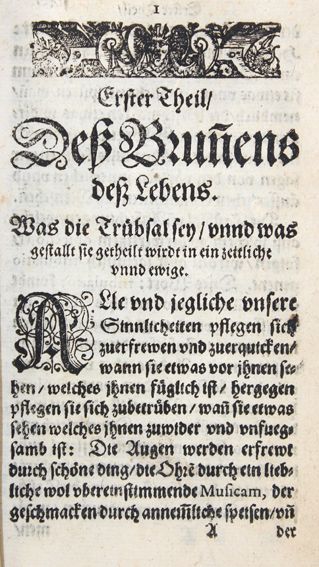 1
Erster Theil/
Deß Bruñens
deß Lebens.
Was die Trübsal sey / vnnd was
gestallt sie getheilt wirdt in ein zeittliche
vnnd ewige.
ALle vnd jegliche vnsere
Sinnlicheiten pflegen sich
zuerfrewen vnd zuerquicken/
wann sie etwas vor jhnen se-
hen/ welches jhnen füglich ist/ hergegen
pflegen sie sich zubetrüben/ wañ sie etwas
sehen welches jhnen zuwider vnd vnfueg-
samb ist: Die Augen werden erfrewt
durch schöne ding/ die Ohrẽ durch ein lieb-
liche wol vbereinstimmende Musicam, der
geschmacken durch annemliche speisen/ vñ
A der